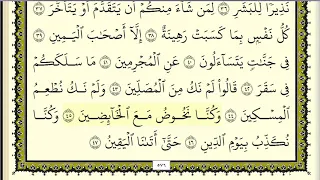 نَذِيرًا لِّلْبَشَرِ ٣٦ لِمَن شَآءَ مِنكُمْ أَن يَتَقَدَّمَ أَوْ يَتَأَخَّرَ ٣٧
كُلُّ نَفْسٍۭ بِمَا كَسَبَتْ رَهِينَةٌ ٣٨ إِلَّآ أَصْحَٰبَ ٱلْيَمِينِ ٣٩
فِى جَنَّٰتٍ يَتَسَآءَلُونَ ٤٠ عَنِ ٱلْمُجْرِمِينَ ٤١ مَا سَلَكَكُمْ
فِى سَقَرَ ٤٢ قَالُوا۟ لَمْ نَكُ مِنَ ٱلْمُصَلِّينَ ٤٣ وَلَمْ نَكُ نُطْعِمُ
ٱلْمِسْكِينَ ٤٤ وَكُنَّا نَخُوضُ مَعَ ٱلْخَآئِضِينَ ٤٥ وَكُنَّا
نُكَذِّبُ بِيَوْمِ ٱلدِّينِ ٤٦ حَتَّىٰٓ أَتَىٰنَا ٱلْيَقِينُ ٤٧
٥٧٦